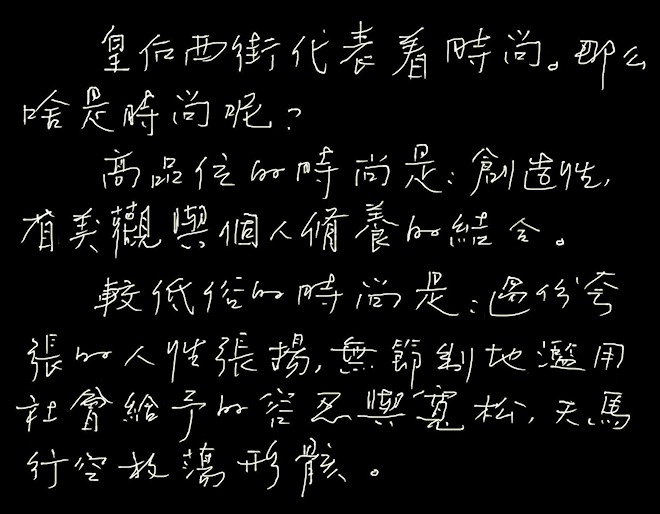 皇后西街代表着時尚。那么
啥是時尚呢?
高品位的時尚是:創造性,
有美觀與個人修養的結合。
較低俗的時尚是:過份夸
張的人性張揚,無節制地濫用
社會給予的容忍與寬松,天馬
行空放蕩形骸。